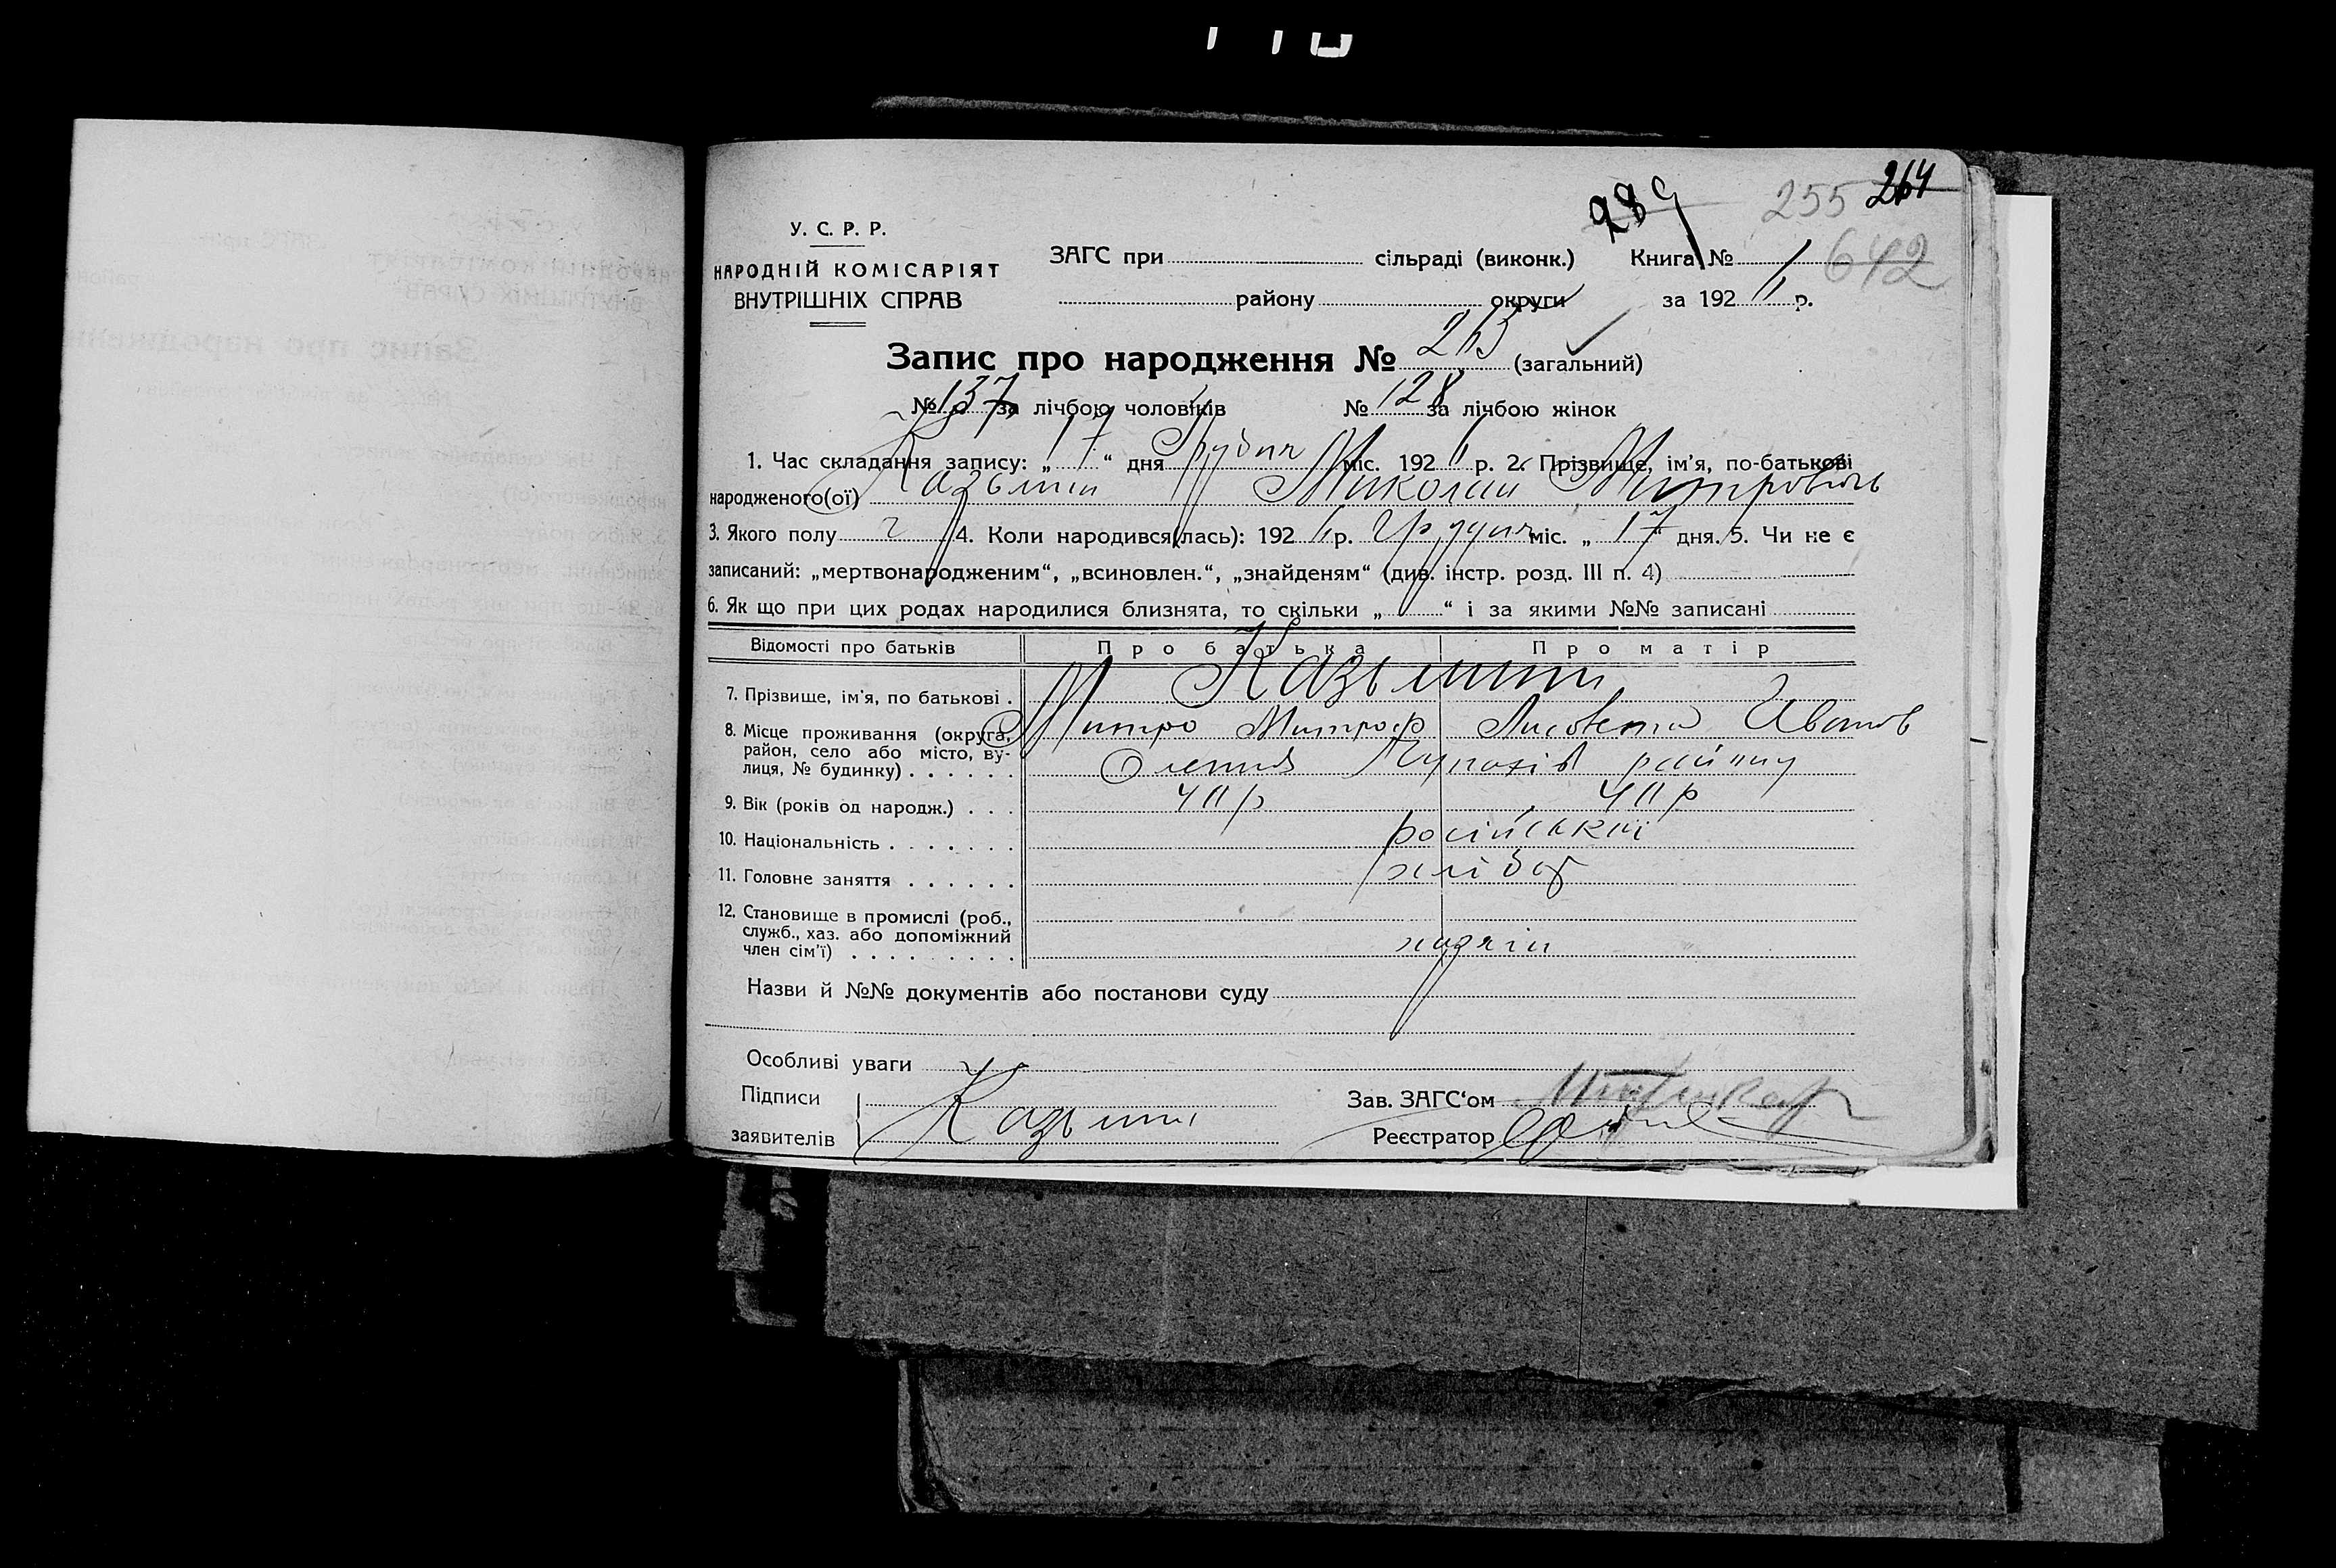 289 255 264
У. С. Р. Р.
НАРОДНІЙ КОМІСАРІЯТ
ВНУТРІШНІХ СПРАВ
ЗАГС при сільраді (виконк.) Книга № 1 642
району округи за 192 р.
Запис про народження № 265 (загальний)
№ 137 за лічбою чоловіків № 128 за лічбою жінок
1. Час складання запису: „ 17 “ дня Грудня міс. 192 р. 2. Прізвище, ім’я, по-батькові
народженого(ої) Казьмин Николай Митрович
3. Якого полу ч 4. Коли народився(лась): 192 р. Грудня міс. „ 17 “ дня. 5. Чи не є
записаний: „мертвонародженим“, „всиновлен.“, „знайденям“ (див. інстр. розд. III п. 4)
6. Як що при цих родах народилися близнята, то скільки „ “ і за якими №№ записані
Відомості про батьків Про батька Про матір
7. Прізвище, ім’я, по батькові . Казьмини
Митро Митроф Лисовета Іванов
8. Місце проживання (округа, район, село або місто, вулиця, № будинку) . . . . . . район
9. Вік (років од народж.) . . . 40 р 40 р
10. Національність . . . . . . . російський
11. Головне заняття . . . . . . хлібор
12. Становище в промислі (роб., служб., хаз. або допоміжний член сім’ї) . . . . . . . . . хазяїн
Назви й №№ документів або постанови суду
Особливі уваги
Підписи заявителів Казьмин
Зав. ЗАГС‘ом
Реєстратор